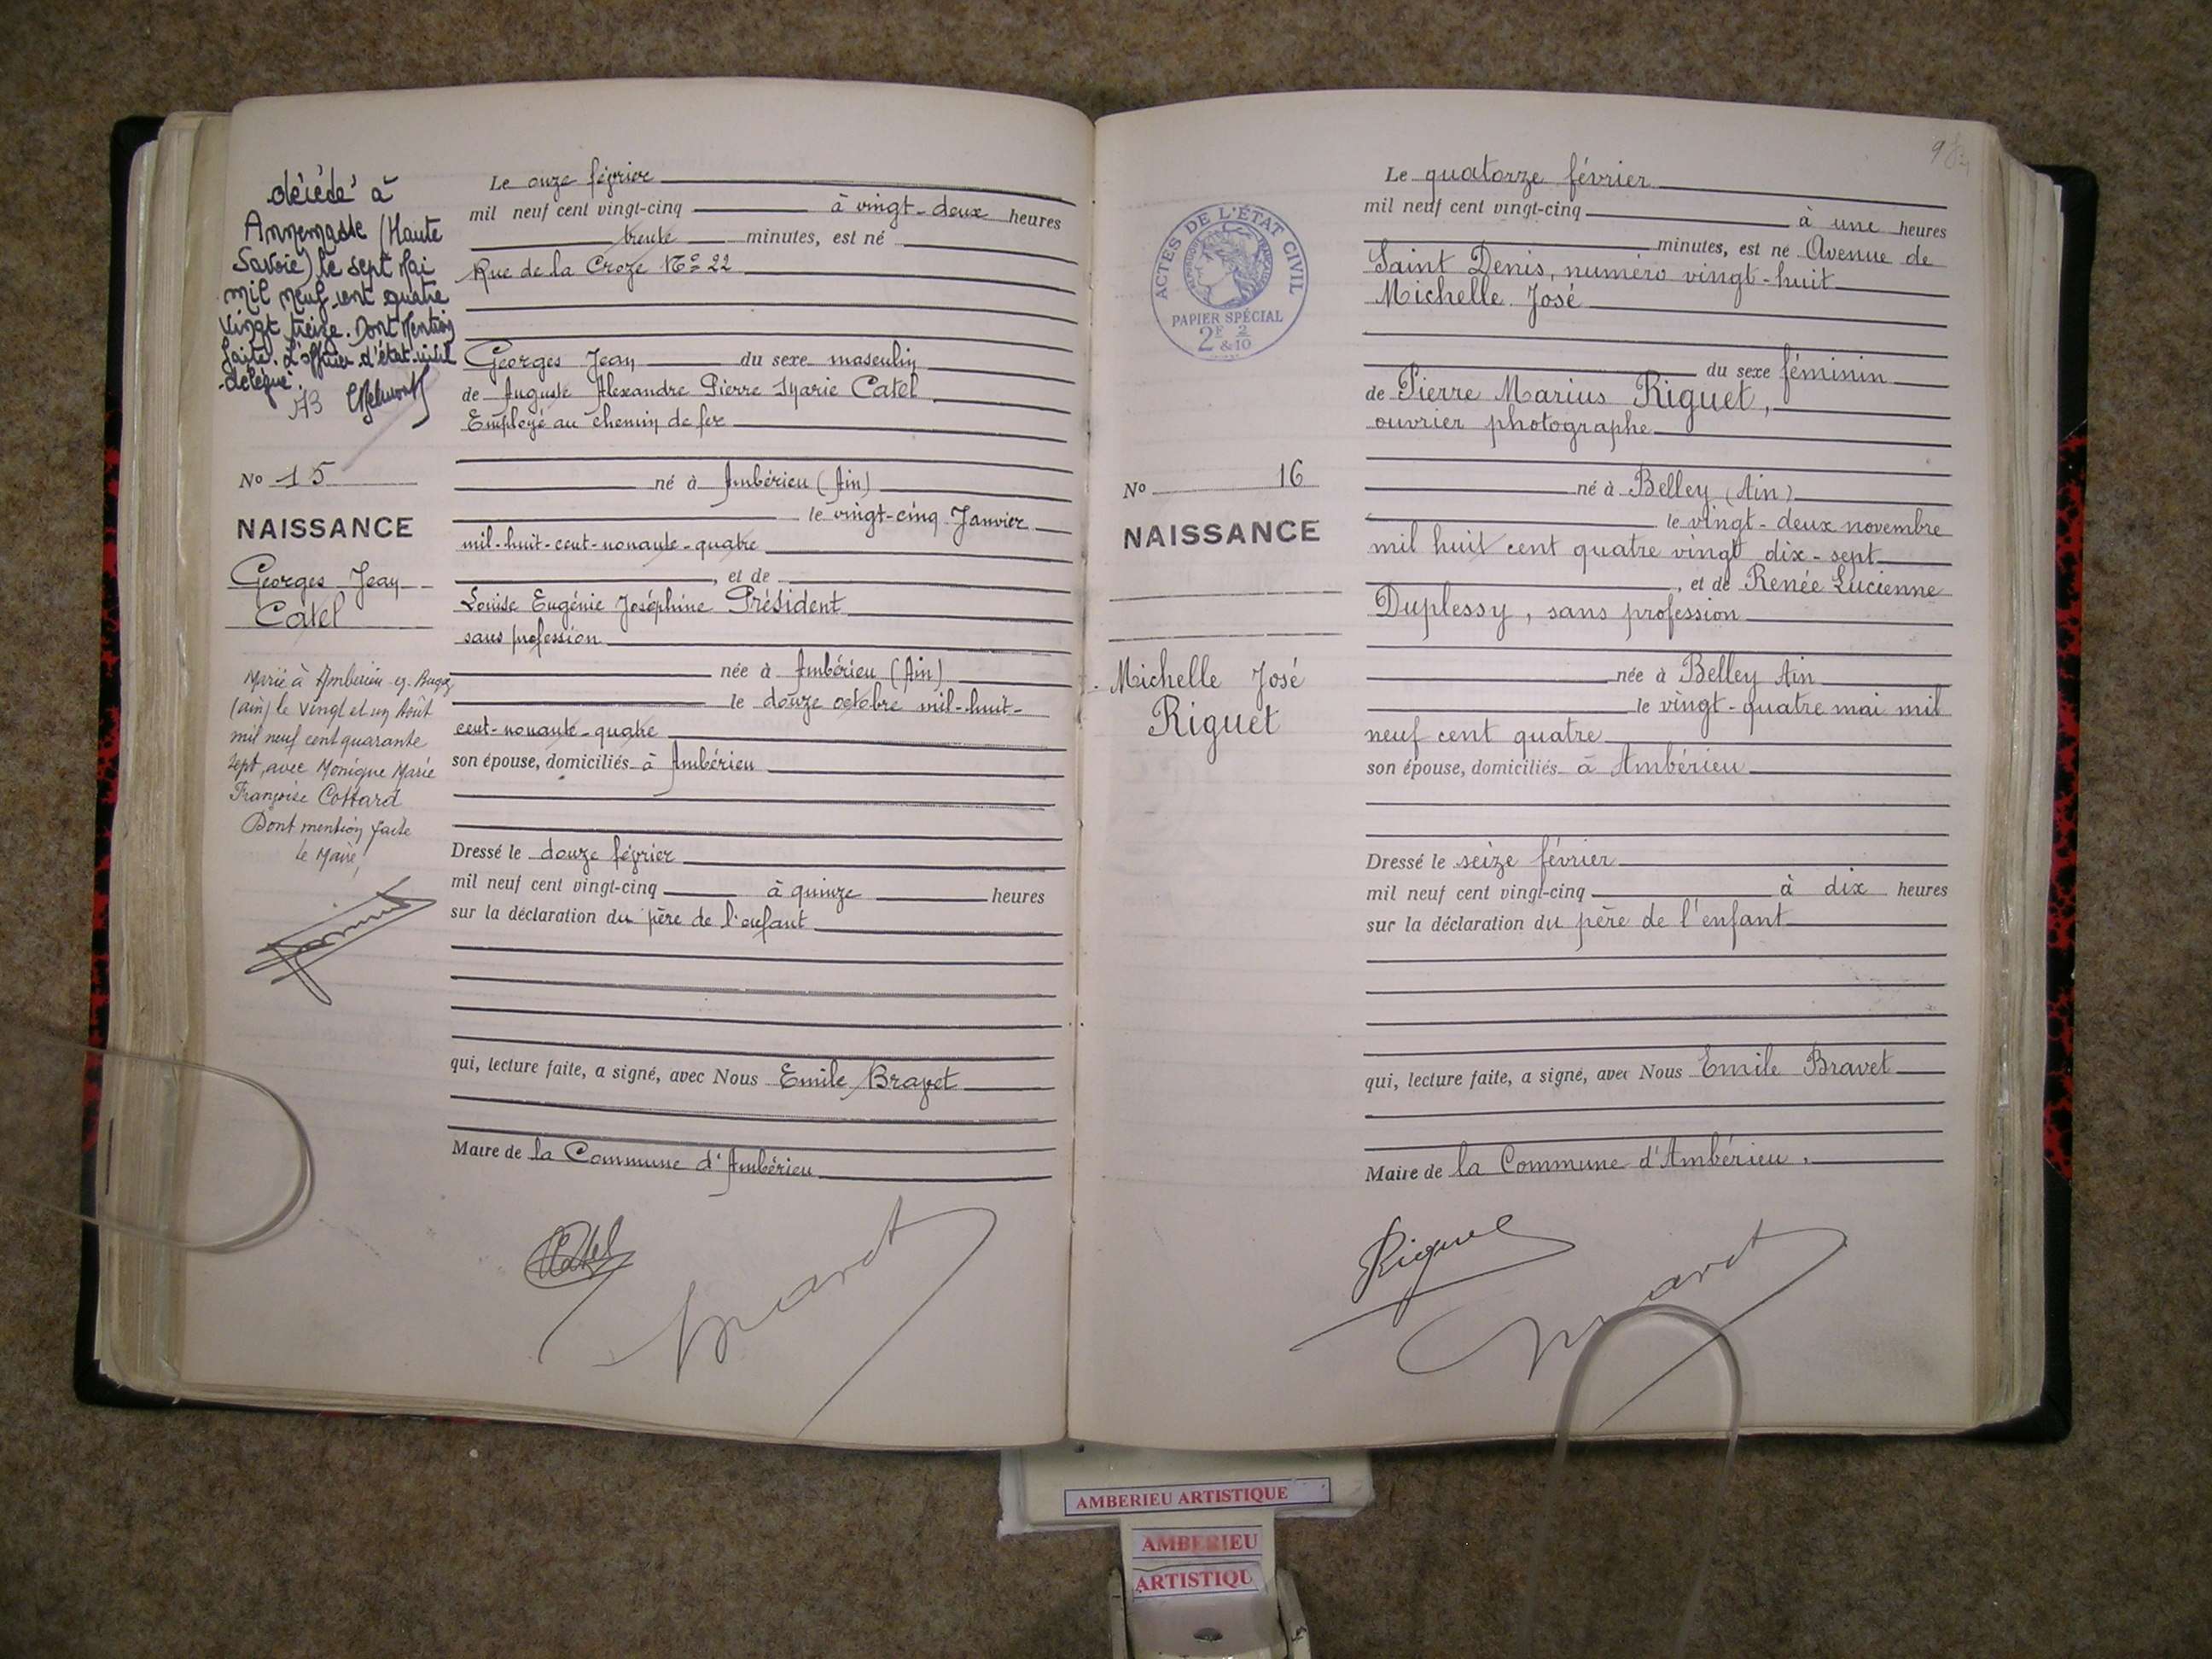 décédé à
Annemasse (Haute
Savoie) le sept Mai
mil neuf cent quatre
vingt treize. Dont Mention
faite. L'officier d'état-civil
délégué.
No 15
NAISSANCE
Georges Jean
Catel
Marié à Ambérieu-en-Bugey
(ain) le Vingt et un Août
mil neuf cent quarante
sept, avec Monique Marie
Françoise Cottard
Dont mention faite
le Maire,
Le onze février
mil neuf cent vingt-cinq à vingt-deux heures
trente minutes, est né
Rue de la Croze No 22
Georges Jean du sexe masculin
de Auguste Alexandre Pierre Marie Catel
Employé au chemin de fer
né à Ambérieu (Ain)
le vingt-cinq Janvier
mil-huit-cent-nonante-quatre
, et de
Louise Eugénie Joséphine Président
sans profession
née à Ambérieu (Ain)
le douze octobre mil-huit-
cent-nonante-quatre
son épouse, domiciliés à Ambérieu
Dressé le douze février
mil neuf cent vingt-cinq à quinze heures
sur la déclaration du père de l'enfant
qui, lecture faite, a signé, avec Nous Emile Bravet
Maire de la Commune d'Ambérieu
Catel
Bravet
ACTES DE L'ÉTAT CIVIL
PAPIER SPÉCIAL
2F 2
&10
No 16
NAISSANCE
Michelle José
Riguet
Le quatorze février
mil neuf cent vingt-cinq à une heures
minutes, est né Avenue de
Saint Denis, numéro vingt-huit
Michelle José
du sexe féminin
de Pierre Marius Riguet,
ouvrier photographe
né à Belley (Ain)
le vingt-deux novembre
mil huit cent quatre vingt dix-sept
, et de Renée Lucienne
Duplessy, sans profession
née à Belley Ain
le vingt-quatre mai mil
neuf cent quatre
son épouse, domiciliés à Ambérieu
Dressé le seize février
mil neuf cent vingt-cinq à dix heures
sur la déclaration du père de l'enfant
qui, lecture faite, a signé, avec Nous Emile Bravet
Maire de la Commune d'Ambérieu.
Riguet
Bravet
AMBERIEU ARTISTIQUE
AMBERIEU
ARTISTIQU